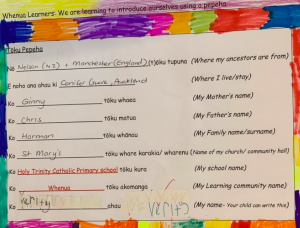 Whenua Learners: We are learning to introduce ourselves using a pepeha
Tōku Pepeha
Nō Nelson (NZ) + Manchester (England) (t)ōku tupuna (Where my ancestors are from)
E noho ana ahau ki Conifer Grove, Auckland (Where I live/stay)
Ko Ginny tōku whaea (My Mother's name)
Ko Chris tōku matua (My Father's name)
Ko Harman tōku whānau (My Family name/surname)
Ko St Mary's tōku whare karakia/ wharenui (Name of my church/ community hall)
Ko Holy Trinity Catholic Primary school tōku kura (My school name)
Ko Whenua tōku akomanga (My Learning community name)
Ko Verity ahau Verity (My name- Your child can write this)